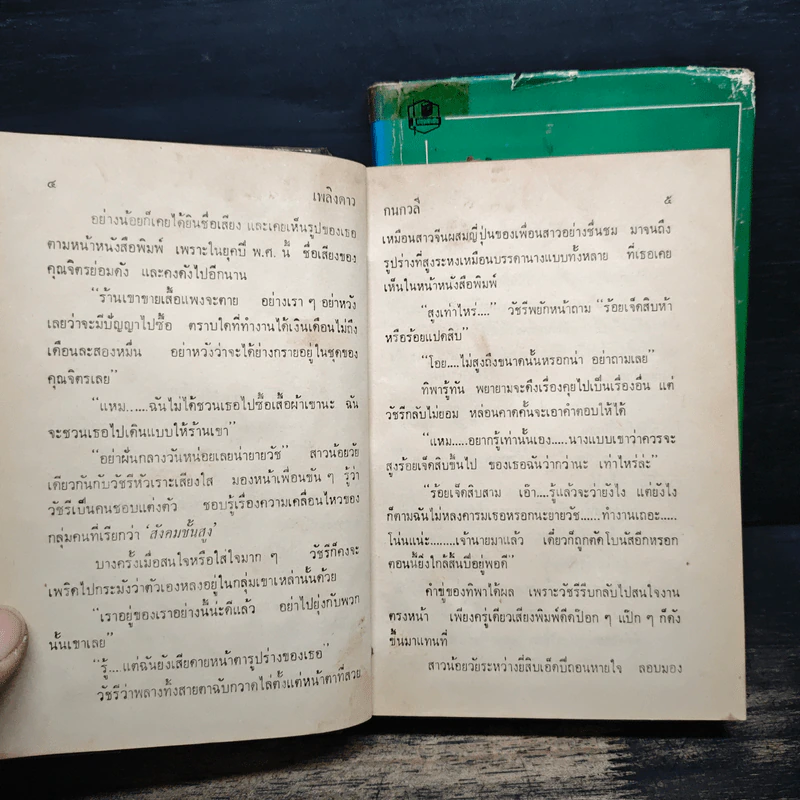 ๔
เพลิงดาว
อย่างน้อยก็เคยได้ยินชื่อเสียง และเคยเห็นรูปของเธอ
ตามหน้าหนังสือพิมพ์ เพราะในยุคปี พ.ศ. นี้ ชื่อเสียงของ
คุณจิตรย่อมดัง และคงดังไปอีกนาน
“ร้านเขาขายเสื้อแพงจะตาย อย่างเรา ๆ อย่าหวัง
เลยว่าจะมีปัญญาไปซื้อ ตราบใดที่ทำงานได้เงินเดือนไม่ถึง
เดือนละสองหมื่น อย่าหวังว่าจะได้ย่างกรายอยู่ในชุดของ
คุณจิตรเลย”
“แหม......ฉันไม่ได้ชวนเธอไปซื้อเสื้อผ้าเขานะ ฉัน
จะชวนเธอไปเดินแบบให้ร้านเขา”
“อย่าฝันกลางวันหน่อยเลยน่ายายวัช” สาวน้อยวัย
เดียวกันกับวัชรีหัวเราะเสียงใส มองหน้าเพื่อนขัน ๆ รู้ว่า
วัชรีเป็นคนชอบแต่งตัว ชอบรู้เรื่องความเคลื่อนไหวของ
กลุ่มคนที่เรียกว่า ‘สังคมชั้นสูง’
บางครั้งเมื่อสนใจหรือใส่ใจมาก ๆ วัชรีก็คงจะ
เพริดไปกระมังว่าตัวเองหลงอยู่ในกลุ่มเขาเหล่านั้นด้วย
“เราอยู่ของเราอย่างนี้น่ะดีแล้ว อย่าไปยุ่งกับพวก
นั้นเขาเลย”
“รู้....แต่ฉันยังเสียดายหน้าตารูปร่างของเธอ”
วัชรีว่าพลางทิ้งสายตาฉับกวาดไล่ตั้งแต่หน้าตาที่สวย
กนกวลี
๕
เหมือนสาวจีนผสมญี่ปุ่นของเพื่อนสาวอย่างชื่นชม มาจนถึง
รูปร่างที่สูงระหงเหมือนบรรดานางแบบทั้งหลาย ที่เธอเคย
เห็นในหน้าหนังสือพิมพ์
“สูงเท่าไหร่....” วัชรีพยักหน้าถาม “ร้อยเจ็ดสิบห้า
หรือร้อยแปดสิบ”
“โอย....ไม่สูงถึงขนาดนั้นหรอกน่า อย่าถามเลย”
ทิพารู้ทัน พยายามจะดึงเรื่องคุยไปเป็นเรื่องอื่น แต่
วัชรีกลับไม่ยอม หล่อนคาดคั้นจะเอาคำตอบให้ได้
“แหม.....อยากรู้เท่านั้นเอง.....นางแบบเขาว่าควรจะ
สูงร้อยเจ็ดสิบขึ้นไป ของเธอฉันว่ากว่านะ เท่าไหร่ล่ะ”
“ร้อยเจ็ดสิบสาม เอ๊า....รู้แล้วจะว่ายังไง แต่ยังไง
ก็ตามฉันไม่หลงคารมเธอหรอกนะยายวัช......ทำงานเถอะ.
โน่นแน่ะ........เจ้านายมาแล้ว เดี๋ยวก็ถูกตัดโบนัสอีกหรอก
ตอนนี้ยิ่งใกล้สิ้นปีอยู่พอดี”
คำขู่ของทิพาได้ผล เพราะวัชรีรีบกลับไปสนใจงาน
ตรงหน้า เพียงครู่เดียวเสียงพิมพ์ดีดป๊อก ๆ แป๊ก ๆ ก็ดัง
ขึ้นมาแทนที่
สาวน้อยวัยระหว่างยี่สิบเอ็ดปีถอนหายใจ ลอบมอง